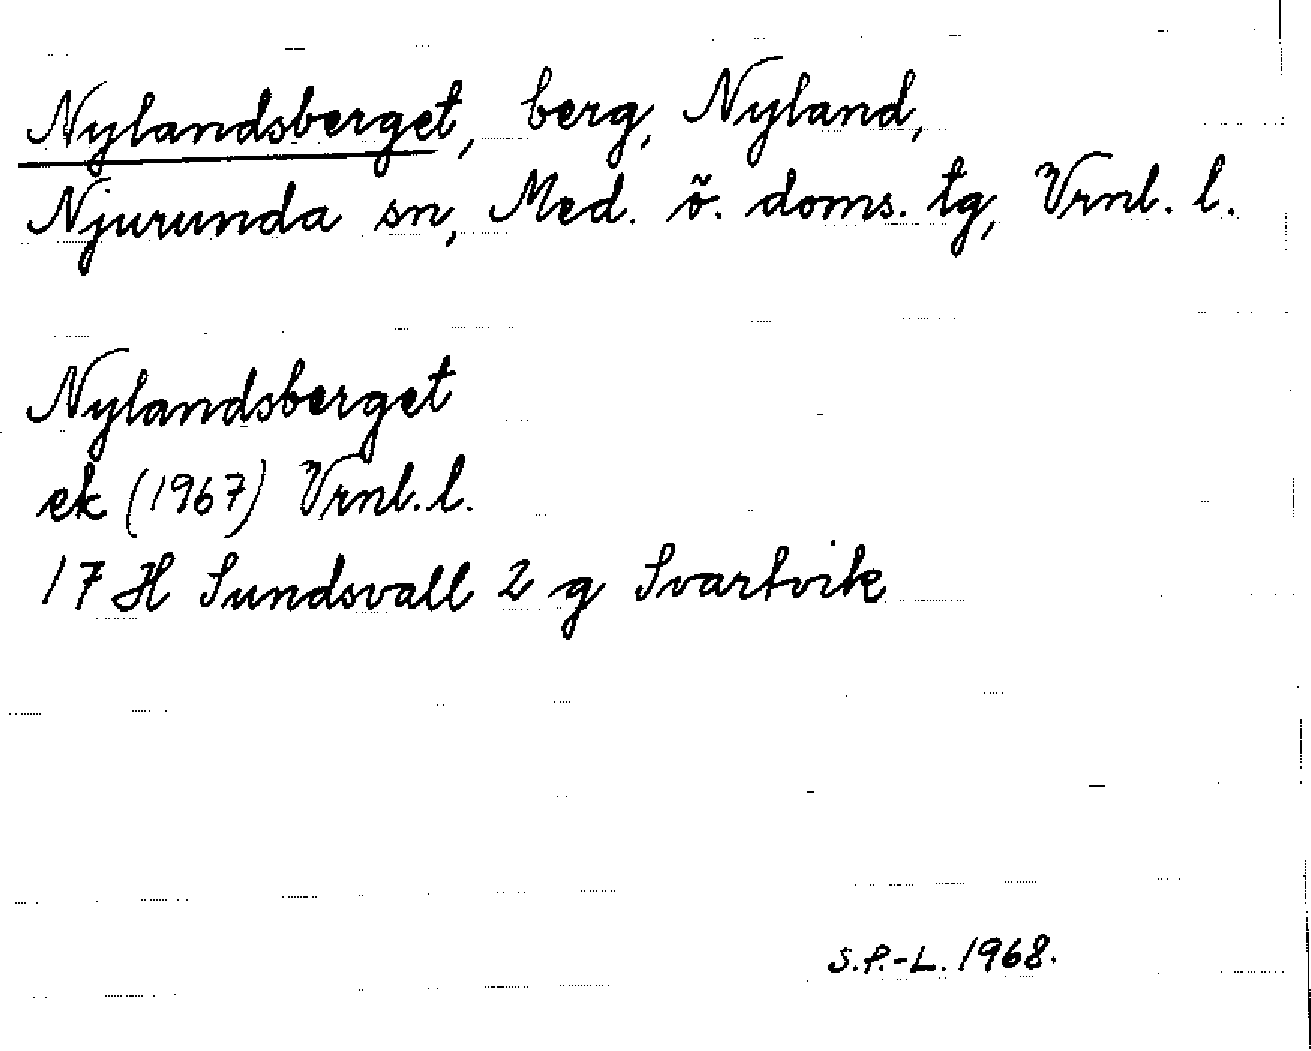 Nylandsberget, berg, Nyland,
Njurunda sn, Med. ö. doms. tg, Vrnl. l.
Nylandsberget
ek (1967) Vrnl. l.
17 H Sundsvall 2 g Svartvik
S.P.-L. 1968.